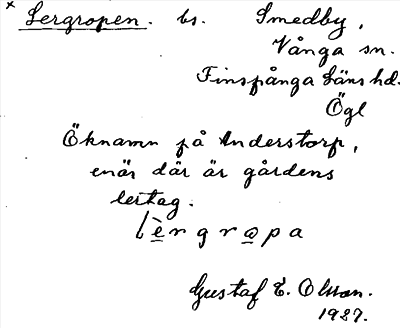 × Lergropen. bs. Smedby,
Vånga sn.
Finspånga Läns hd.
Ögl
Öknamn på Anderstorp,
enär där är gårdens
lertag.
lèrgrọpa
Gustaf E. Olsson.
1927.